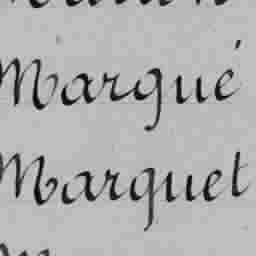 Marqué
Marquet